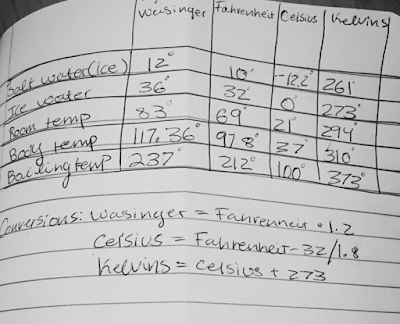 Wasinger Fahrenheit Celsius Kelvins
Salt water (ice) 12° 10° -12.2° 261°
Ice water 36° 32° 0° 273°
Room temp 83° 69° 21° 294°
Body temp 117.36° 97.8° 37° 310°
Boiling temp 237° 212° 100° 373°
Conversions: Wasinger = Fahrenheit • 1.2
Celsius = Fahrenheit - 32/1.8
Kelvins = Celsius + 273